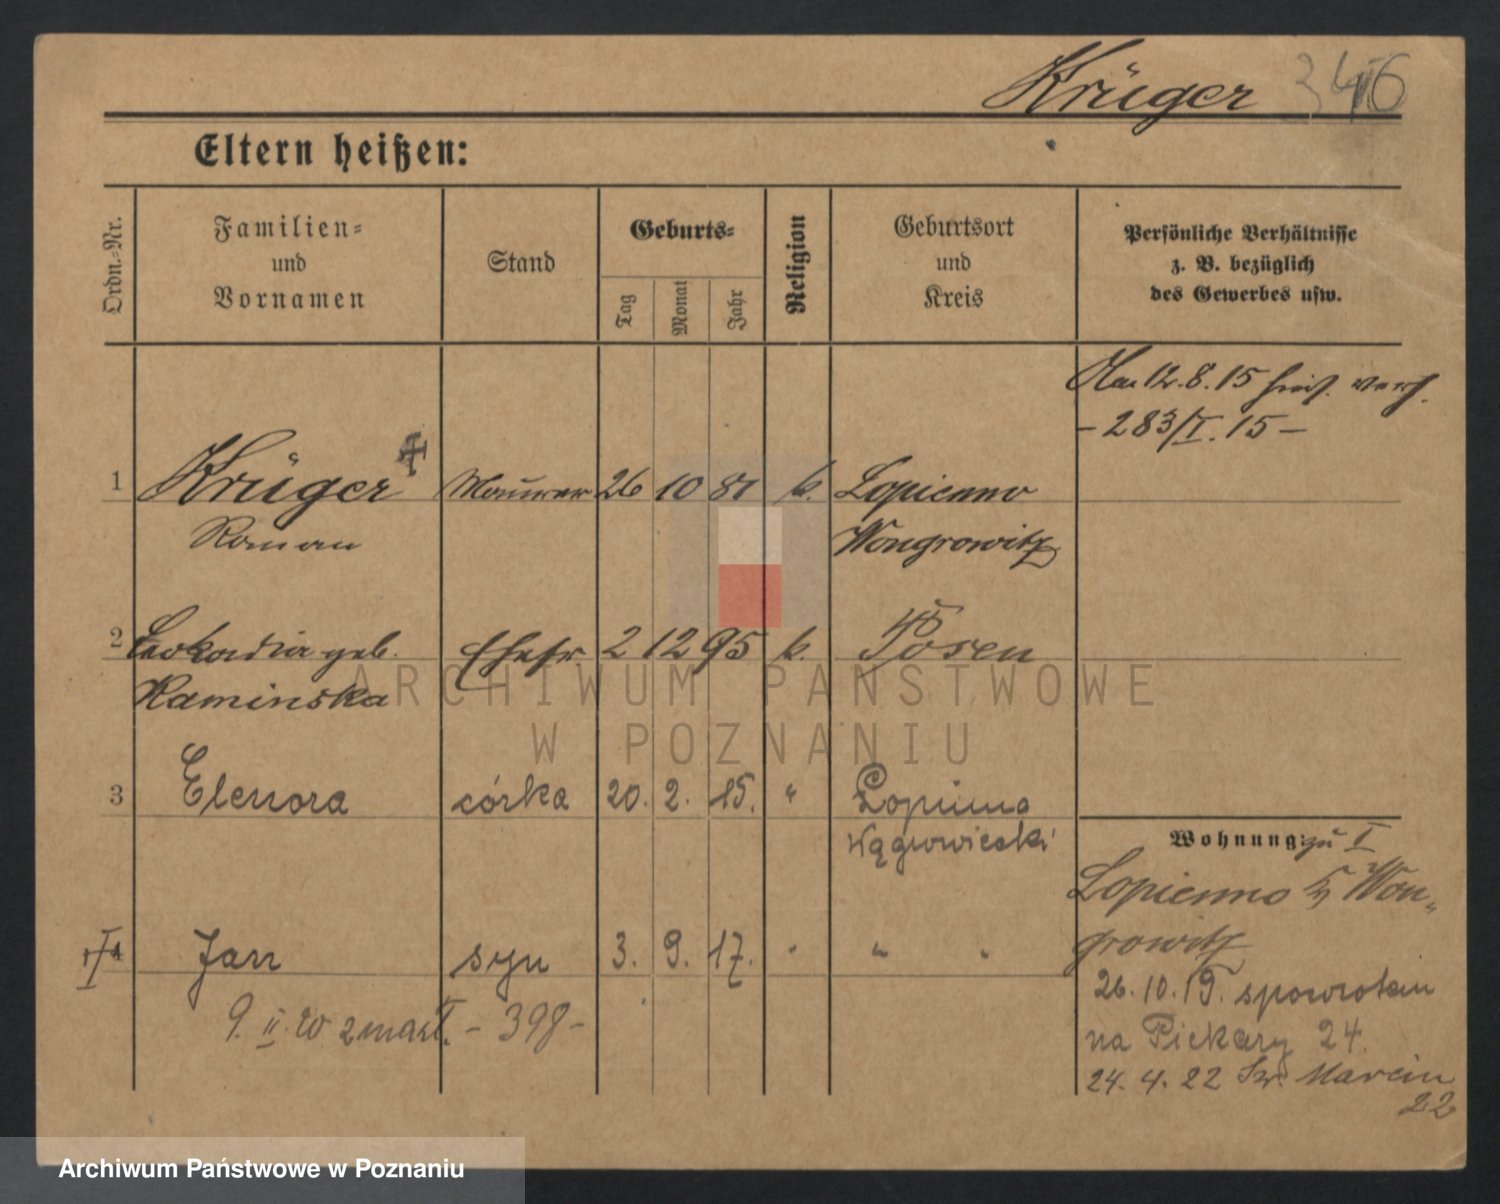 Krüger 3416
Eltern heißen:
Ordn.-Nr.
Familien-
und
Vornamen
Stand
Geburts-
Tag
Monat
Jahr
Religion
Geburtsort
und
Kreis
Persönliche Verhältnisse
z. B. bezüglich
des Gewerbes usw.
12.8.15
- 283/I. 15 -
1 Krüger Maurer 26 10 81 k. Lopienno
Roman Wongrowitz
2 Leokadia geb. Ehefr 2 12 95 k. Posen
Kaminska
3 Elenora córka 20. 2. 15. " Łopienno
Wągrowiecki
Wohnung: zu I
Lopienno Kr Won-
growitz
4 Jan syn 3. 9. 17. " " "
26. 10. 19. spowrotem
9. II. 20 zmarł. - 398 -
na Piekary 24.
24. 4. 22 Św. Marcin
22
ARCHIWUM PAŃSTWOWE
W POZNANIU
Archiwum Państwowe w Poznaniu